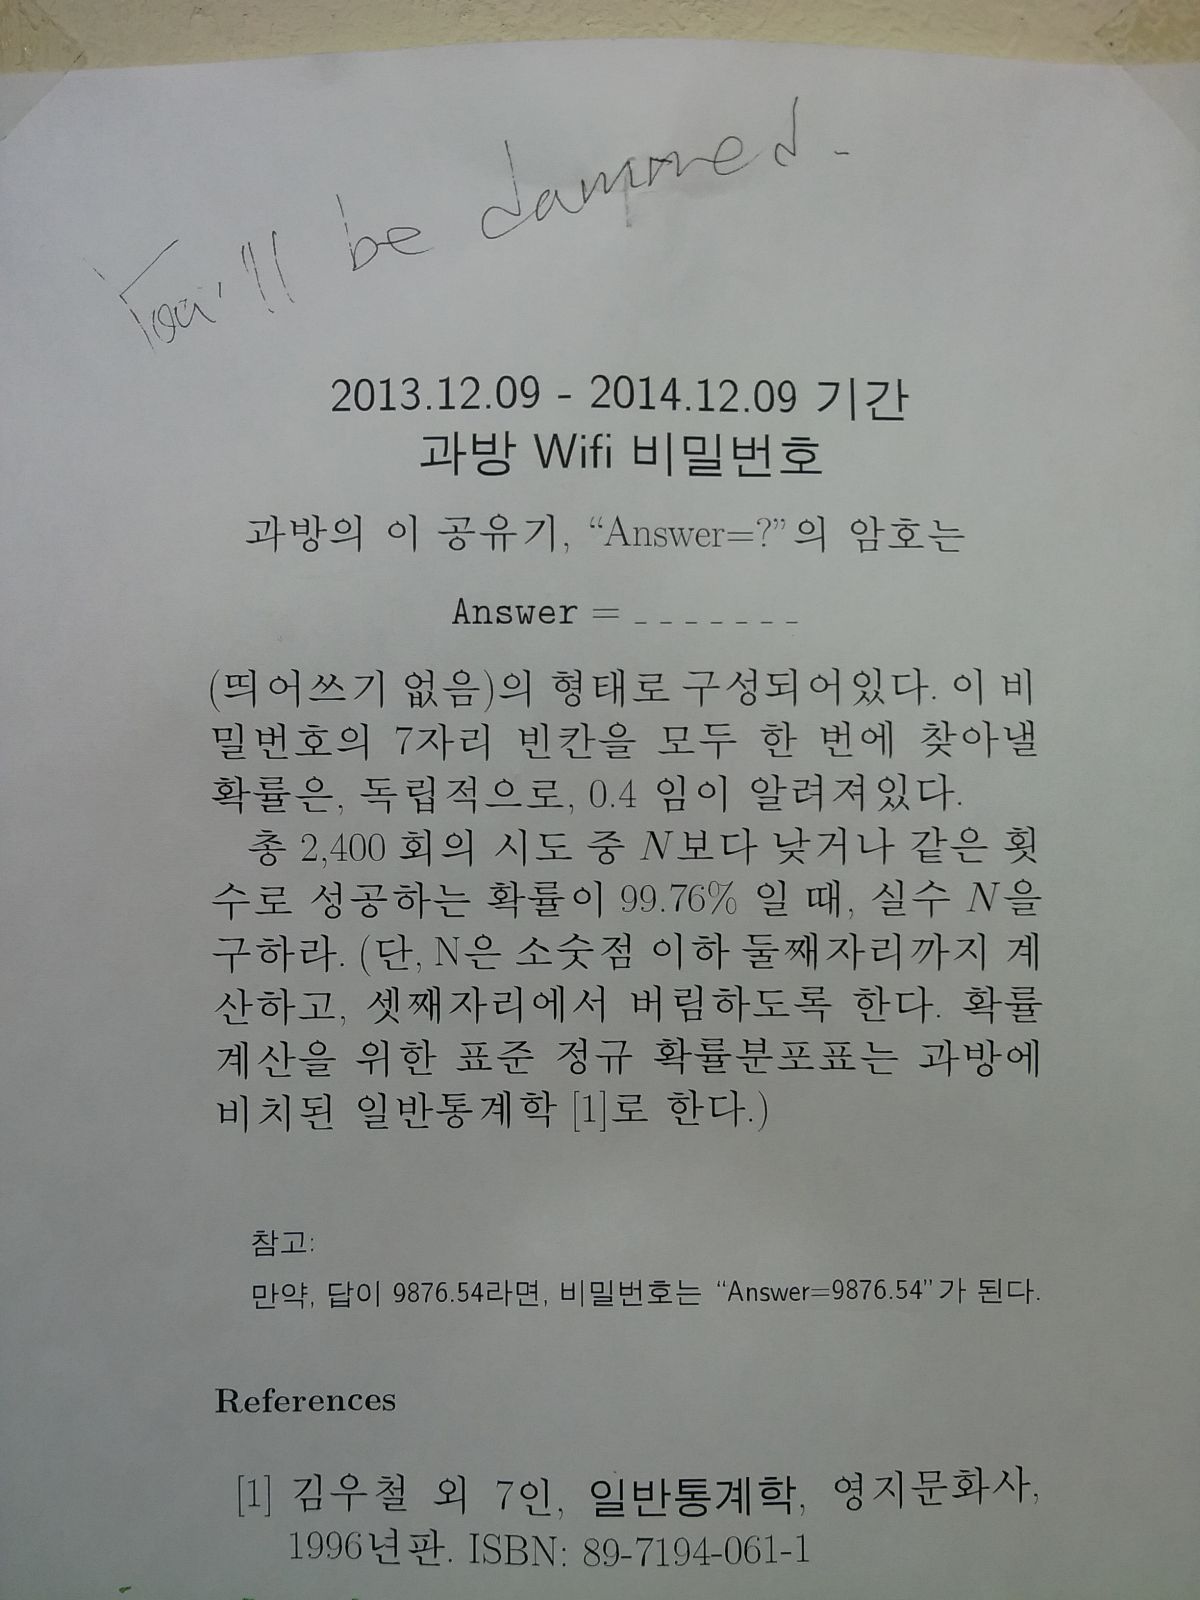 You'll be dammed.
2013.12.09 - 2014.12.09 기간
과방 Wifi 비밀번호
과방의 이 공유기, “Answer=?”의 암호는
Answer = _ _ _ _ _ _ _
(띄어쓰기 없음)의 형태로 구성되어있다. 이 비
밀번호의 7자리 빈칸을 모두 한 번에 찾아낼
확률은, 독립적으로, 0.4 임이 알려져있다.
총 2,400 회의 시도 중 N보다 낮거나 같은 횟
수로 성공하는 확률이 99.76% 일 때, 실수 N을
구하라. (단, N은 소숫점 이하 둘째자리까지 계
산하고, 셋째자리에서 버림하도록 한다. 확률
계산을 위한 표준 정규 확률분포표는 과방에
비치된 일반통계학 [1]로 한다.)
참고:
만약, 답이 9876.54라면, 비밀번호는 “Answer=9876.54”가 된다.
References
[1] 김우철 외 7인, 일반통계학, 영지문화사,
1996년판. ISBN: 89-7194-061-1